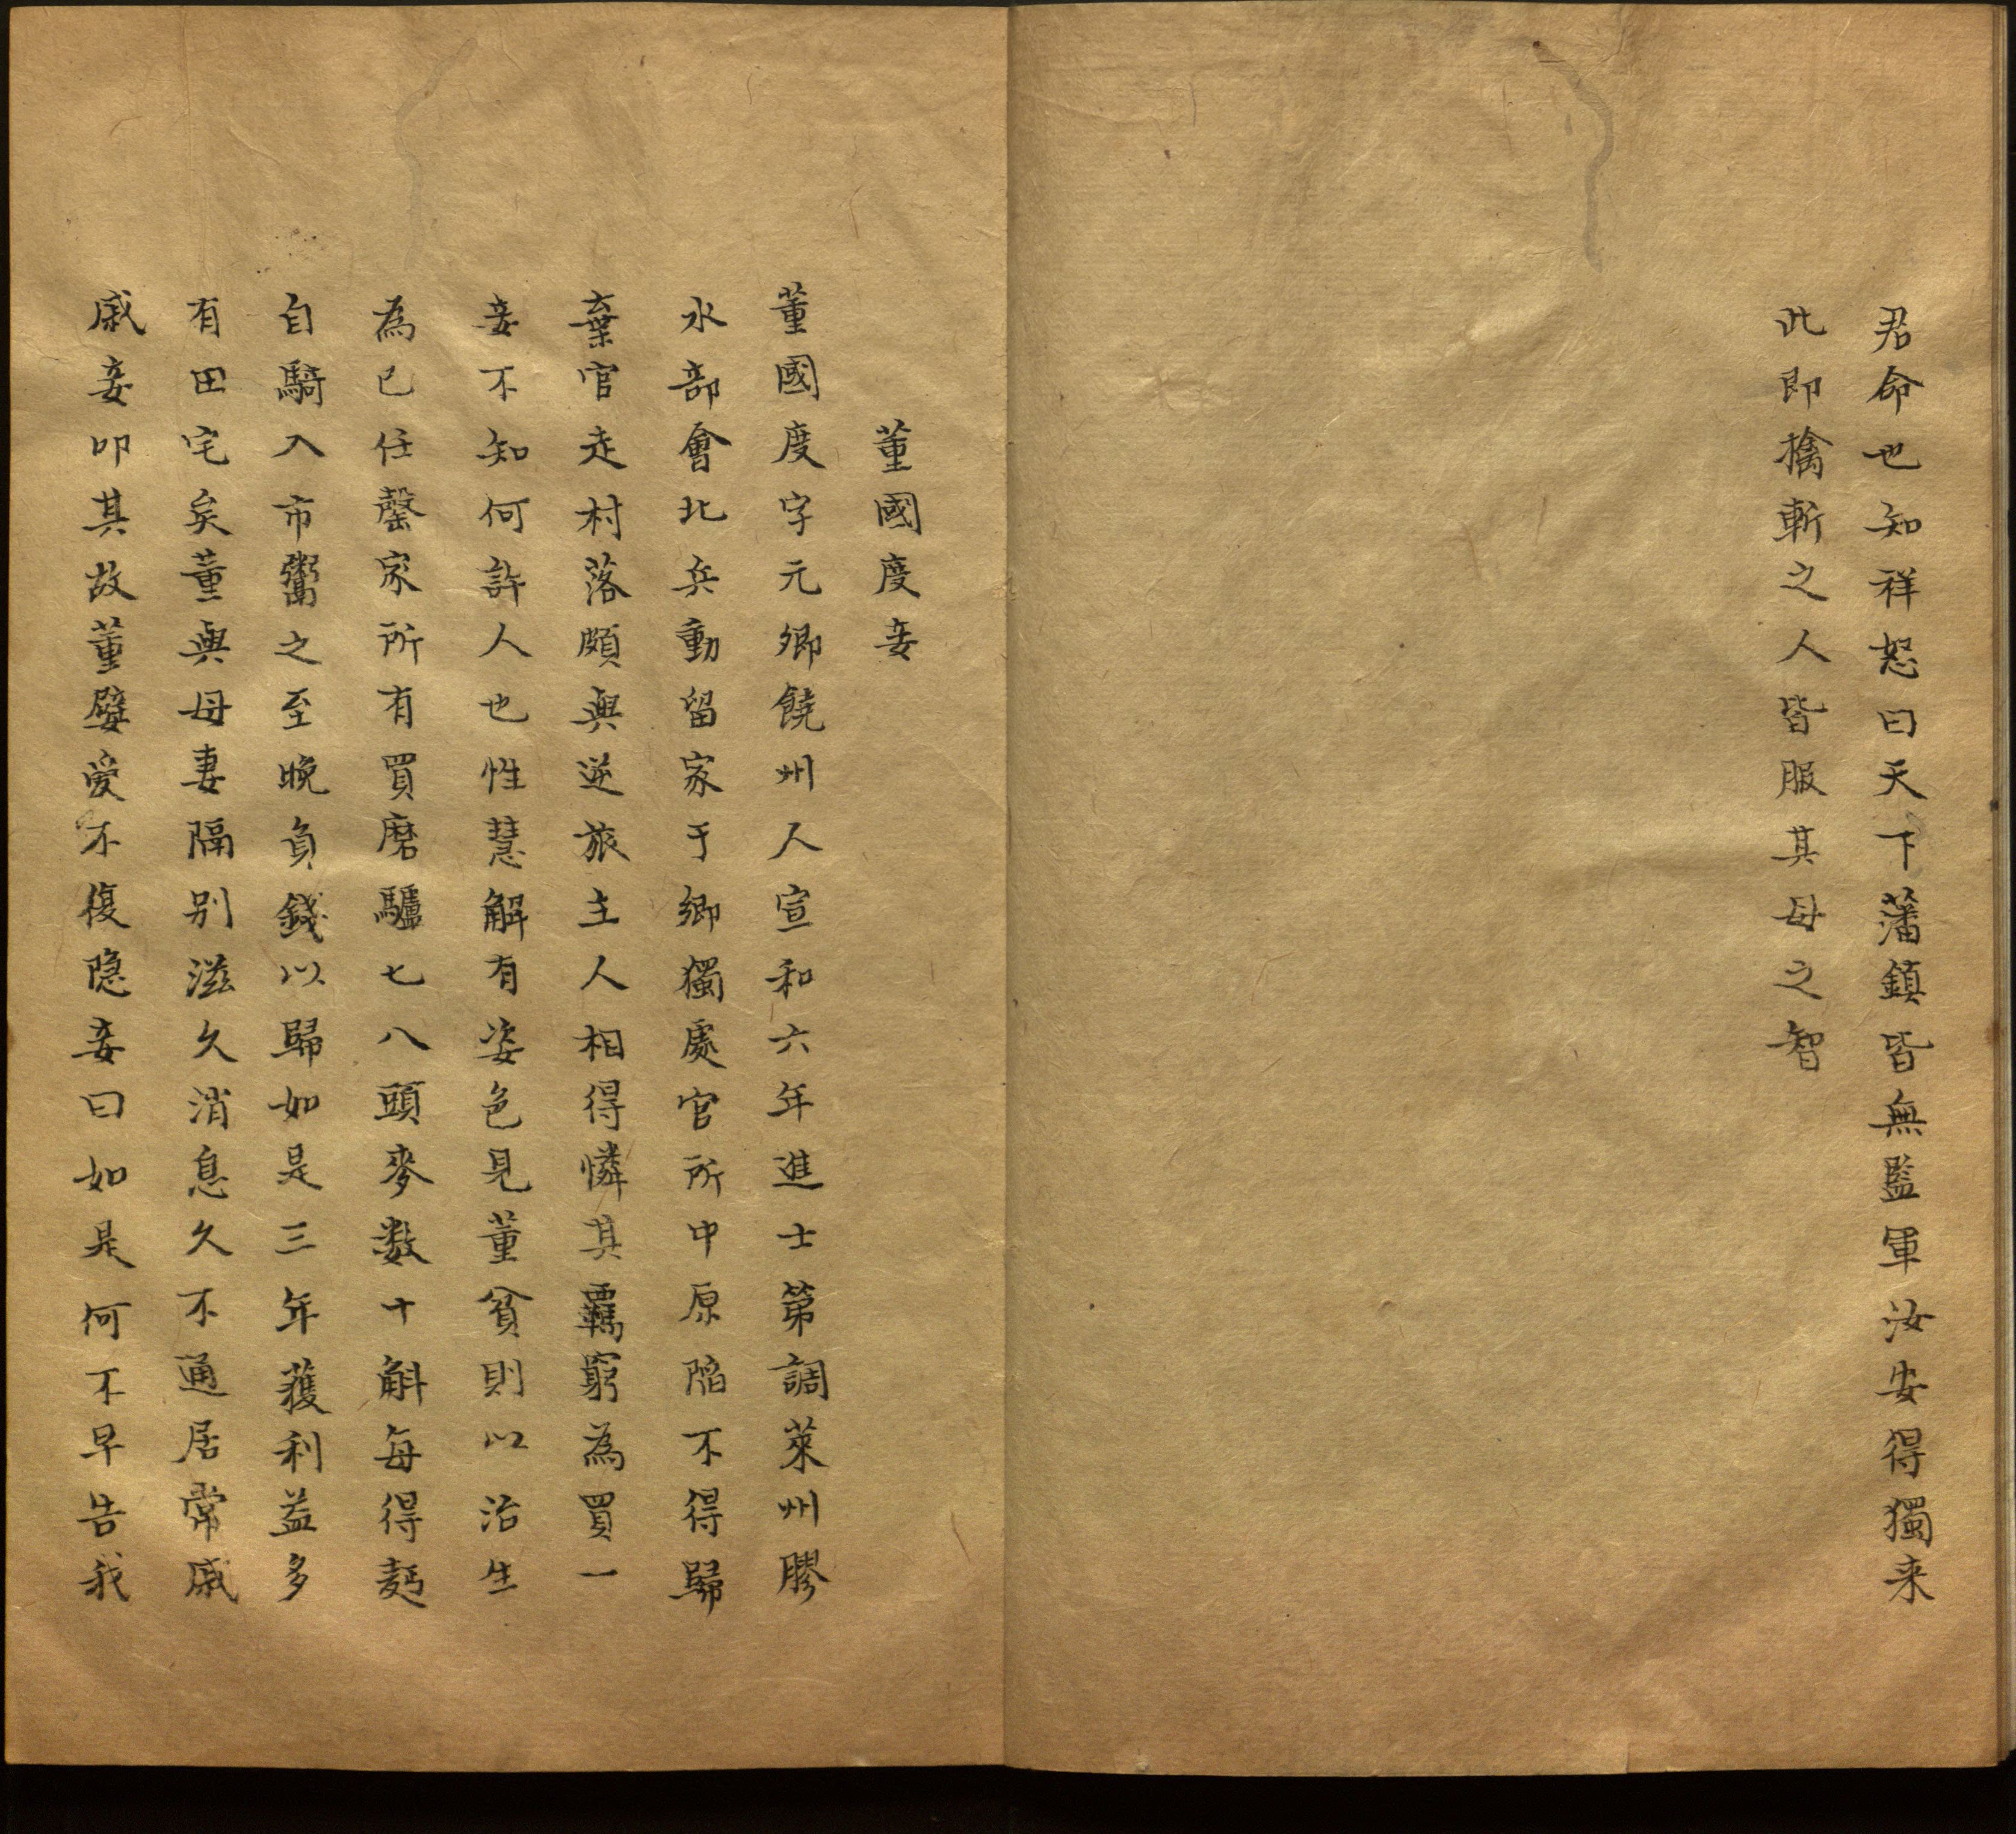 君命也知祥怒曰天下藩鎮皆無監軍汝安得獨来
此即擒斬之人皆服其母之智
董國度妾
董國度字元卿饒州人宣和六年進士第調萊州膠
水部會北兵動留家于鄉獨處官所中原陷不得歸
棄官走村落頗與逆旅主人相得憐其羈窮為買一
妾不知何許人也性慧解有姿色見董貧則以治生
為已任罄家所有買磨驢七八頭麥数十斛每得麪
自騎入市鬻之至晚負錢以歸如是三年獲利益多
有田宅矣董與母妻隔别滋久消息久不通居常戚
戚妾叩其故董嬖愛不復隐妾曰如是何不早告我